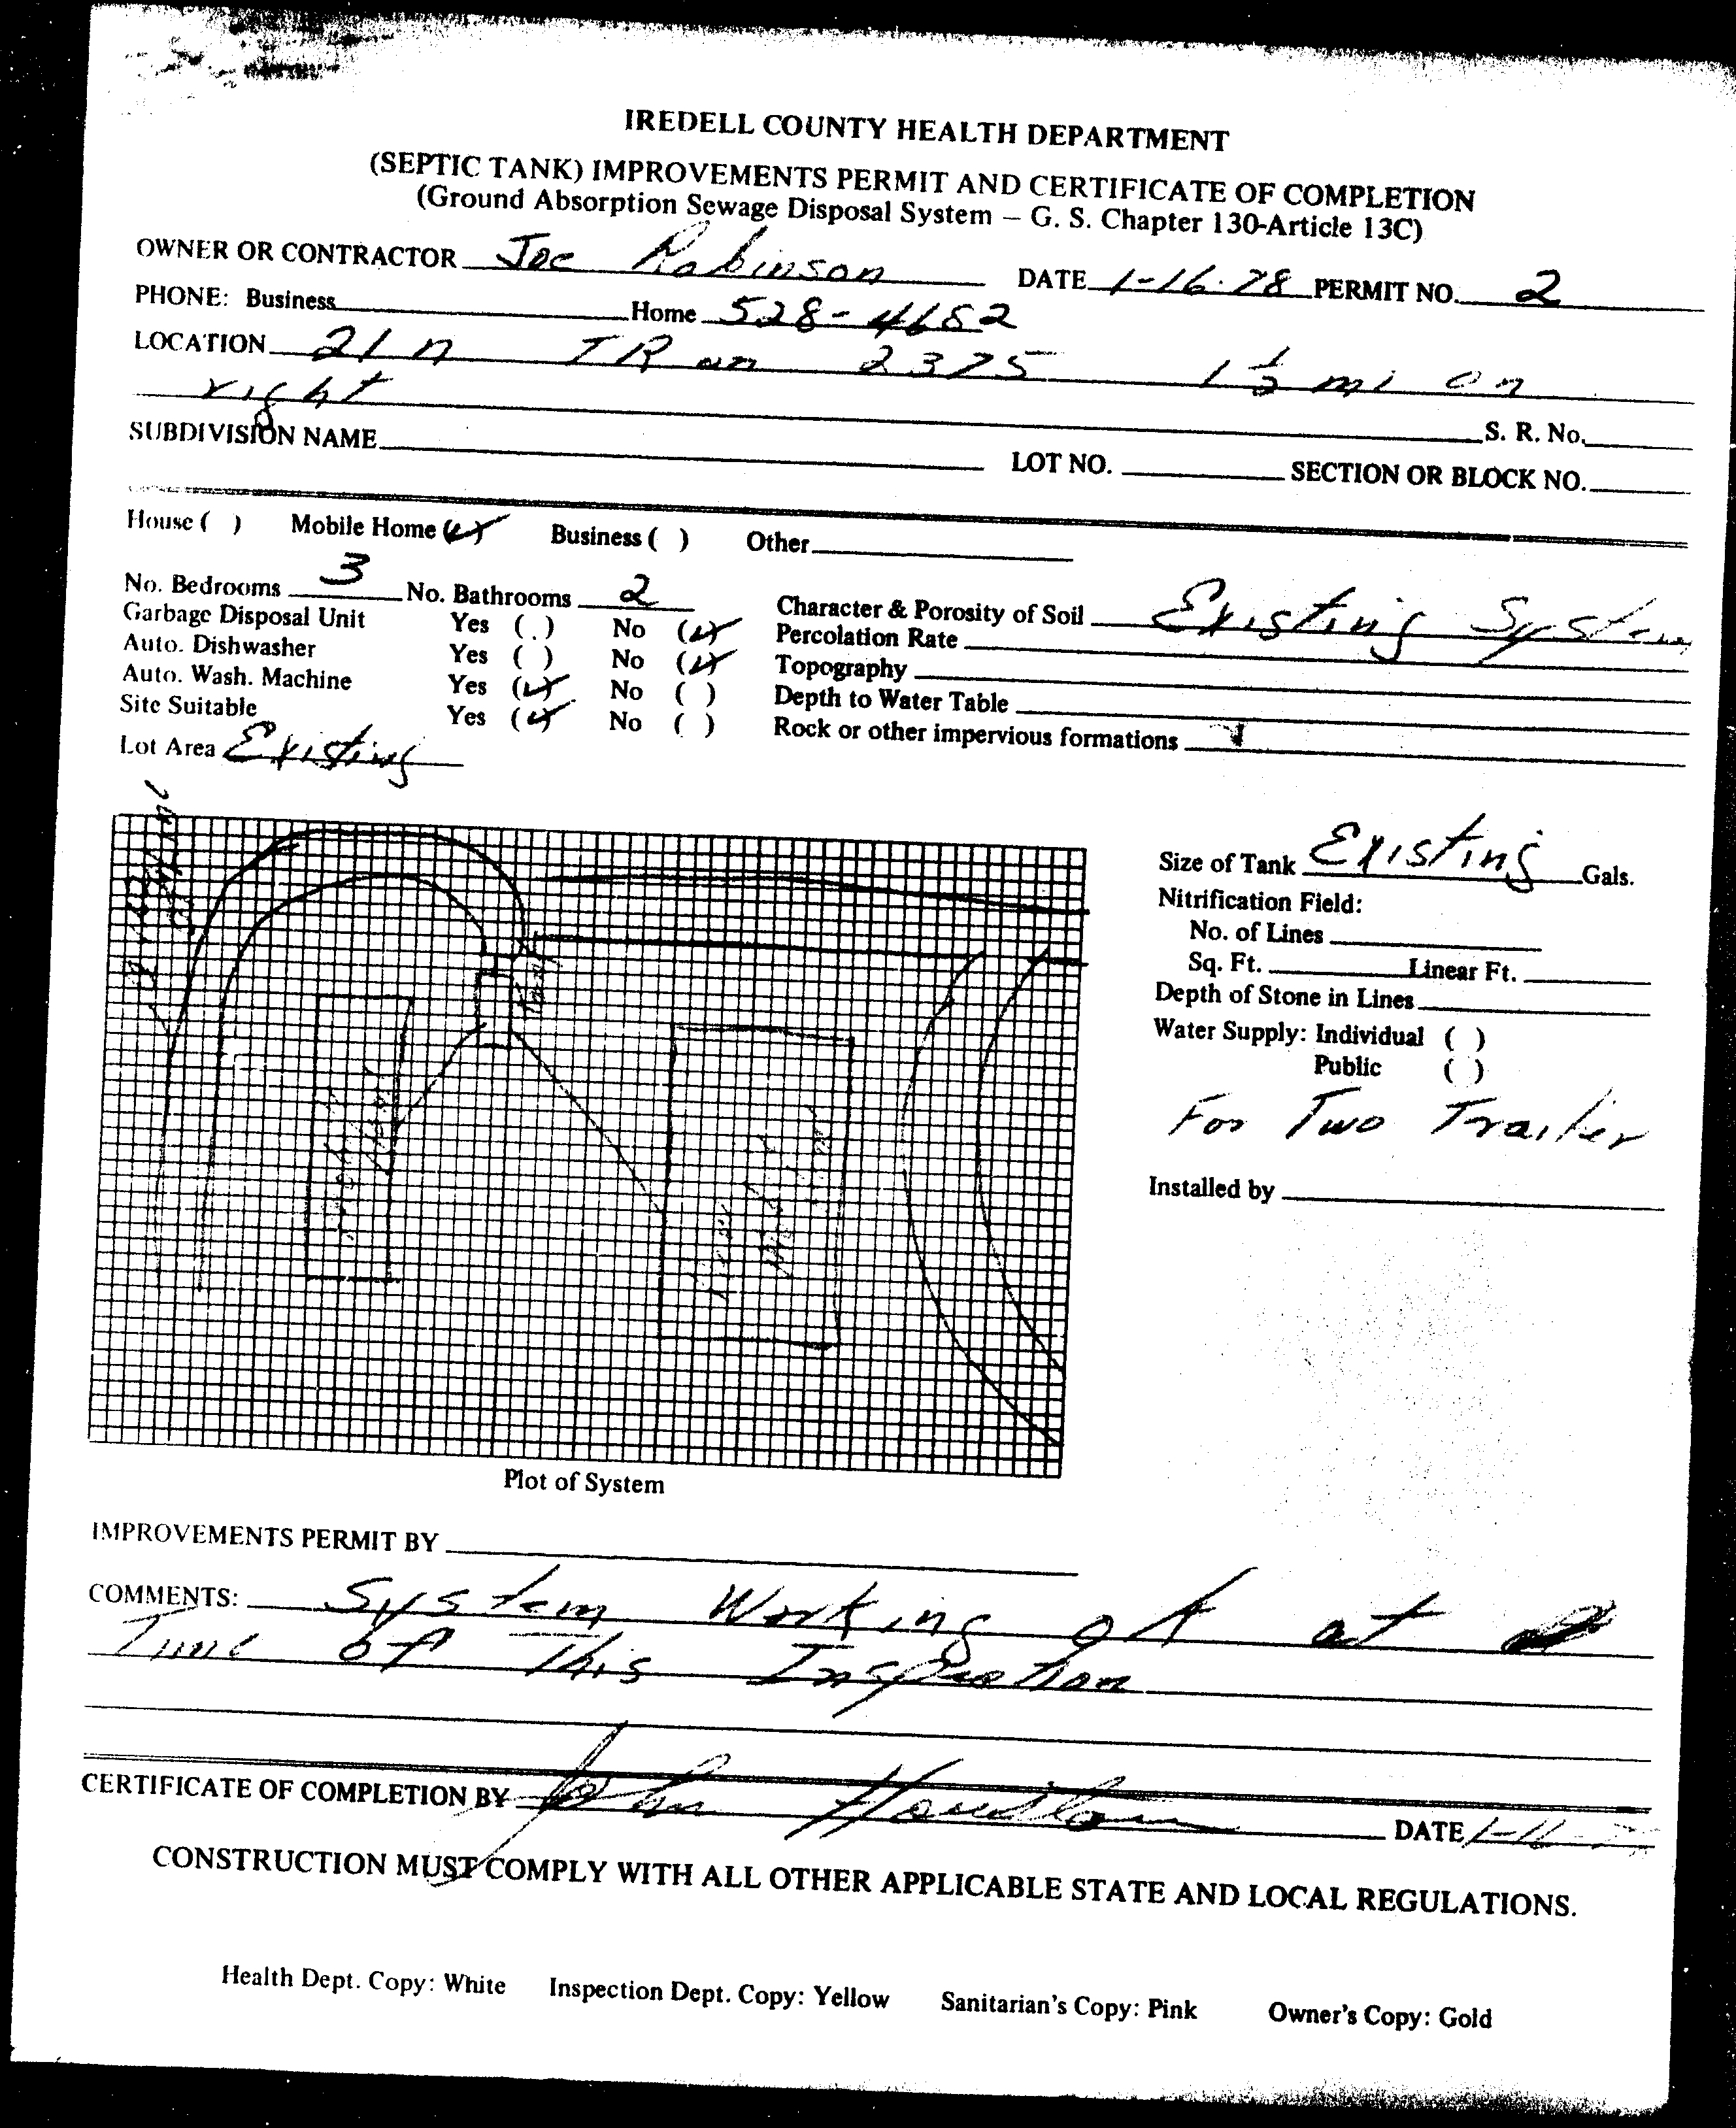 IREDELL COUNTY HEALTH DEPARTMENT
(SEPTIC TANK) IMPROVEMENTS PERMIT AND CERTIFICATE OF COMPLETION
(Ground Absorption Sewage Disposal System – G. S. Chapter 130-Article 13C)
OWNER OR CONTRACTOR Joe Robinson DATE 1-16-78 PERMIT NO. 2
PHONE: Business Home 528-4652
LOCATION 21 n TR on 2375 1 1/2 mi on
right
S. R. No.
SUBDIVISION NAME LOT NO. SECTION OR BLOCK NO.
House ( ) Mobile Home (✓) Business ( ) Other
No. Bedrooms 3 No. Bathrooms 2 Character & Porosity of Soil Existing System
Garbage Disposal Unit Yes ( ) No (✓) Percolation Rate
Auto. Dishwasher Yes ( ) No (✓) Topography
Auto. Wash. Machine Yes (✓) No ( ) Depth to Water Table
Site Suitable Yes (✓) No ( ) Rock or other impervious formations
Lot Area Existing
Size of Tank Existing Gals.
Nitrification Field:
No. of Lines
Sq. Ft. Linear Ft.
Depth of Stone in Lines
Water Supply: Individual ( )
Public ( )
For Two Trailer
Installed by
Tank
Plot of System
IMPROVEMENTS PERMIT BY
COMMENTS: System Working OK at
Time of This Inspection
CERTIFICATE OF COMPLETION BY John DATE
CONSTRUCTION MUST COMPLY WITH ALL OTHER APPLICABLE STATE AND LOCAL REGULATIONS.
Health Dept. Copy: White Inspection Dept. Copy: Yellow Sanitarian's Copy: Pink Owner's Copy: Gold